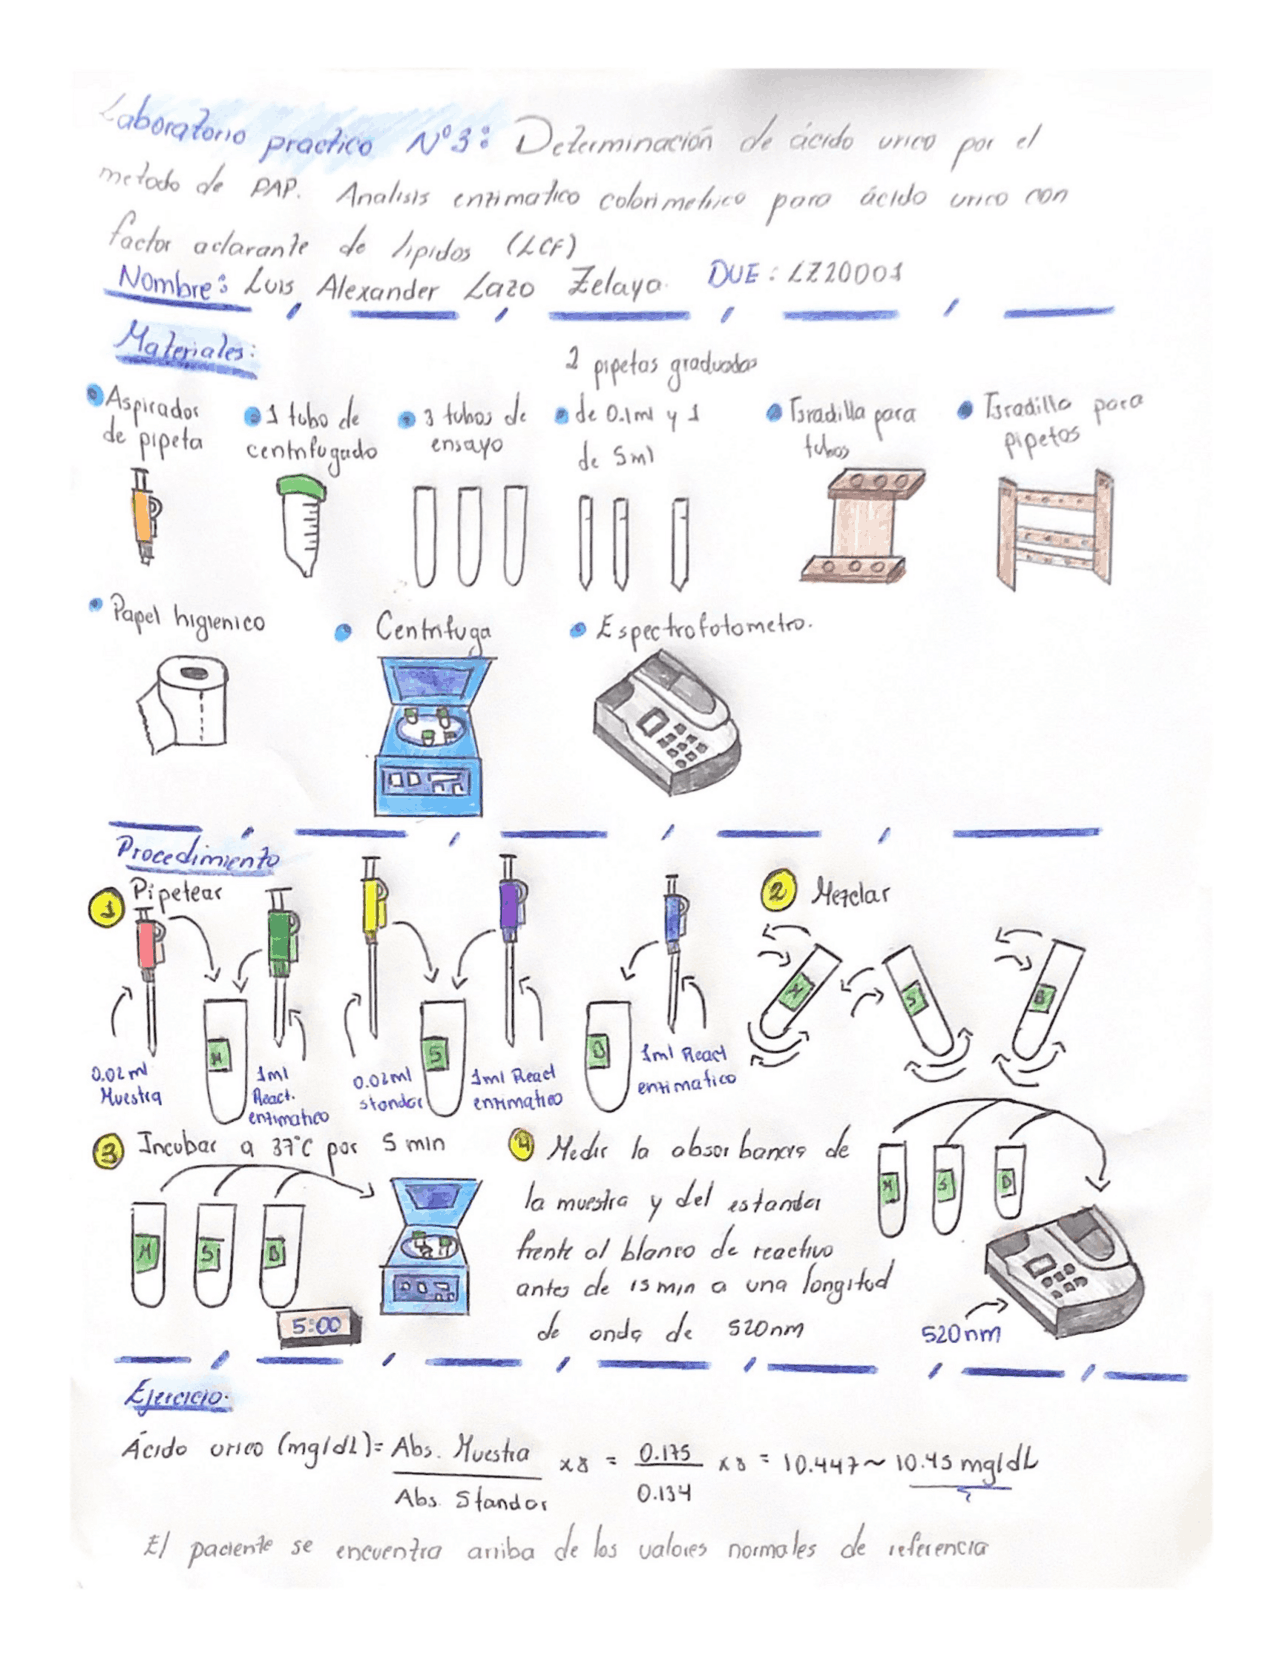 Laboratorio practico N°3: Determinación de ácido urico por el
metodo de PAP. Analisis enzimatico colorimetrico para ácido urico con
factor aclarante de lipidos (LCF)
Nombre: Luis Alexander Lazo Zelaya. DUE: LZ20001
Materiales:
Aspirador
de pipeta
1 tubo de
centrifugado
3 tubos de
ensayo
2 pipetas graduadas
de 0.1ml y 1
de 5ml
Gradilla para
tubos
Gradilla para
pipetas
Papel higienico
Centrifuga
Espectrofotometro.
Procedimiento
1 Pipetear
0.02ml
Muestra
M
1ml
React.
enzimatico
0.02ml
standar
S
1ml React
enzimatico
B
1ml React
enzimatico
2 Mezclar
M
S
B
3 Incubar a 37°C por 5 min
M
S
B
5:00
4 Medir la absorbancia de
la muestra y del estandar
frente al blanco de reactivo
antes de 15 min a una longitud
de onda de 520nm
M
S
B
520nm
Ejercicio.
Ácido urico (mg/dL)= Abs. Muestra / Abs. Standar x8 = 0.175 / 0.134 x8 = 10.447~ 10.45 mg/dL
El paciente se encuentra arriba de los valores normales de referencia